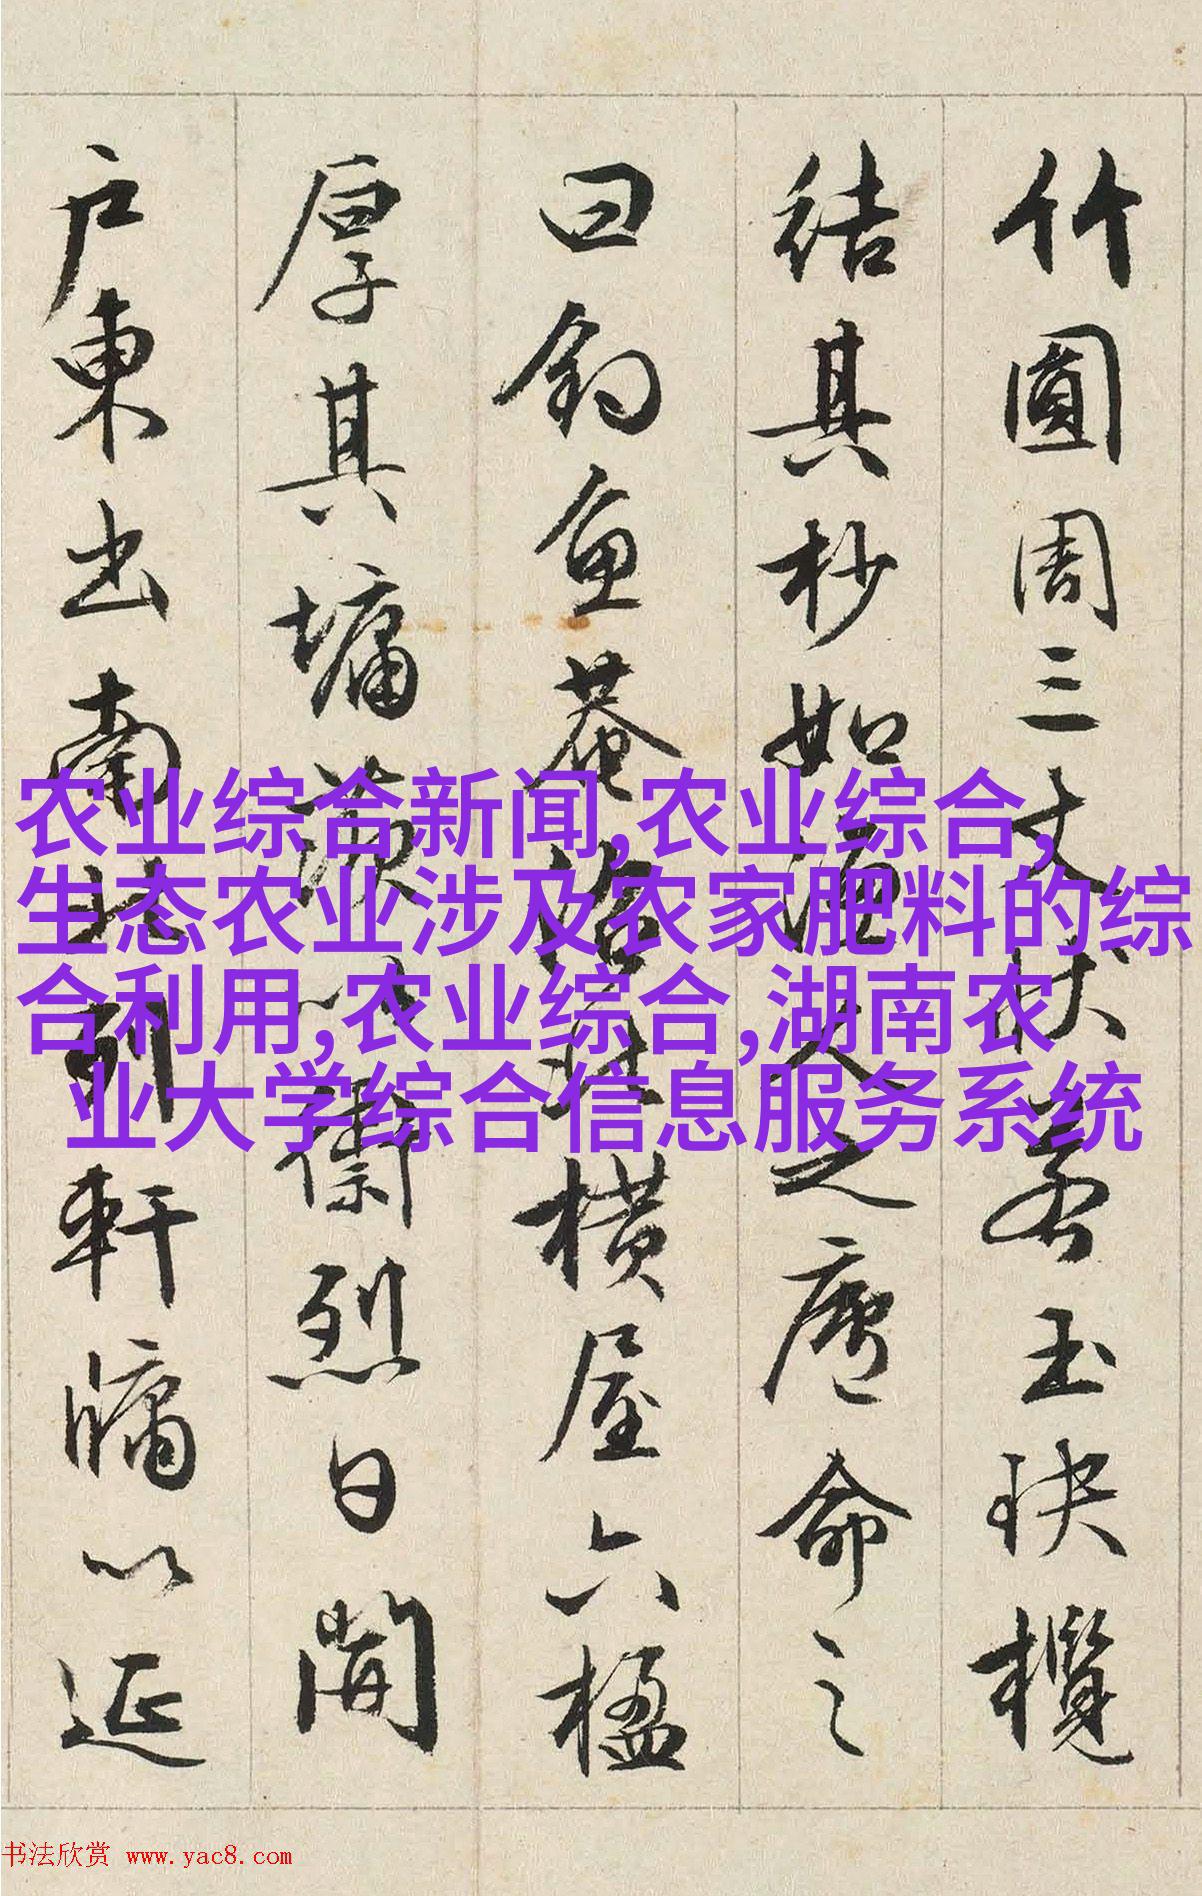 竹圓周三丈狀若玉玦攬
结其杪如漁人之廬命之
曰釣魚菴治地橫屋六楹
厚其墉
衛烈日開
户東出南北列軒牖以延
农业综合新闻,农业综合,
生态农业涉及农家肥料的综
合利用,农业综合,湖南农
业大学综合信息服务系统
书法欣赏 www.yac8.com